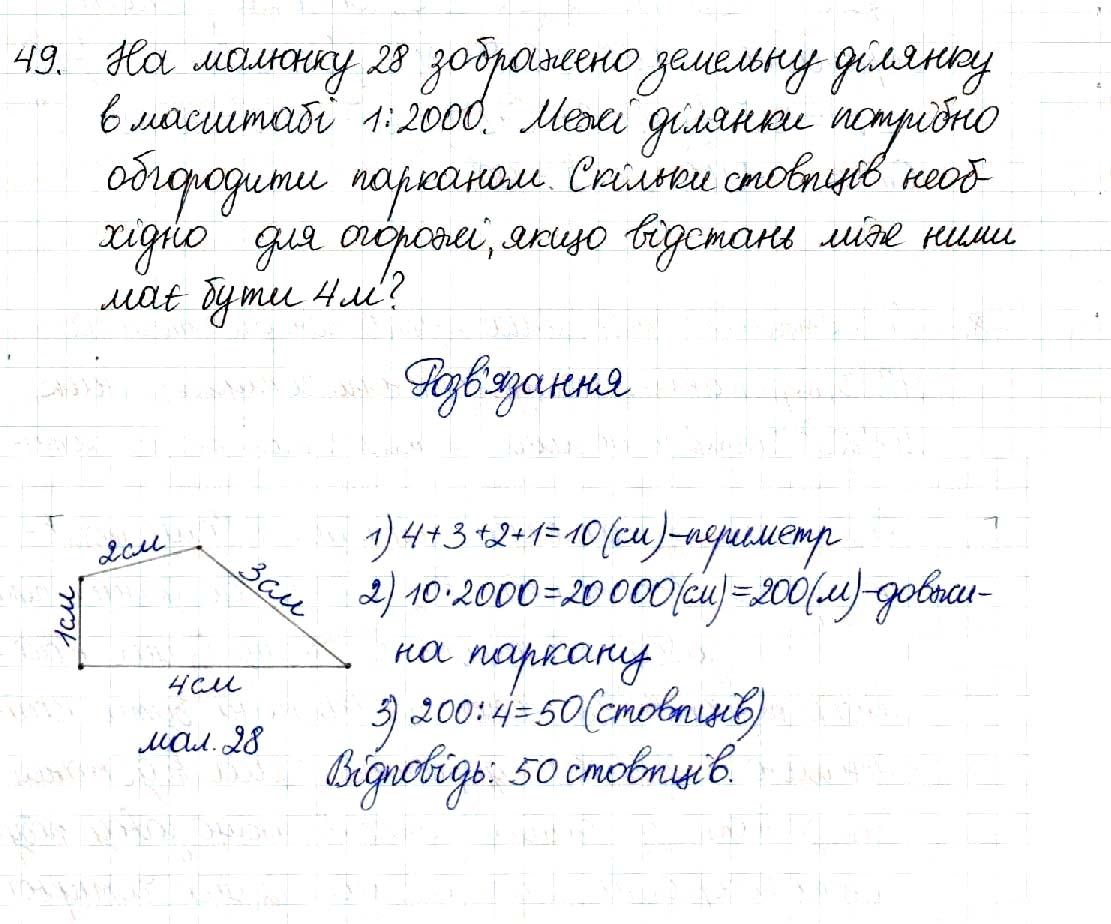 49. На малюнку 28 зображено земельну ділянку
в масштабі 1:2000. Межі ділянки потрібно
обгородити парканом. Скільки стовпців необ-
хідно для огорожі, якщо відстань між ними
має бути 4м?
Розв'язання
2см
3см
1см
4см
мал. 28
1) 4+3+2+1=10(см)-периметр
2) 10·2000=20000(см)=200(м)-довжи-
на паркану
3) 200:4=50(стовпців)
Відповідь: 50 стовпців.